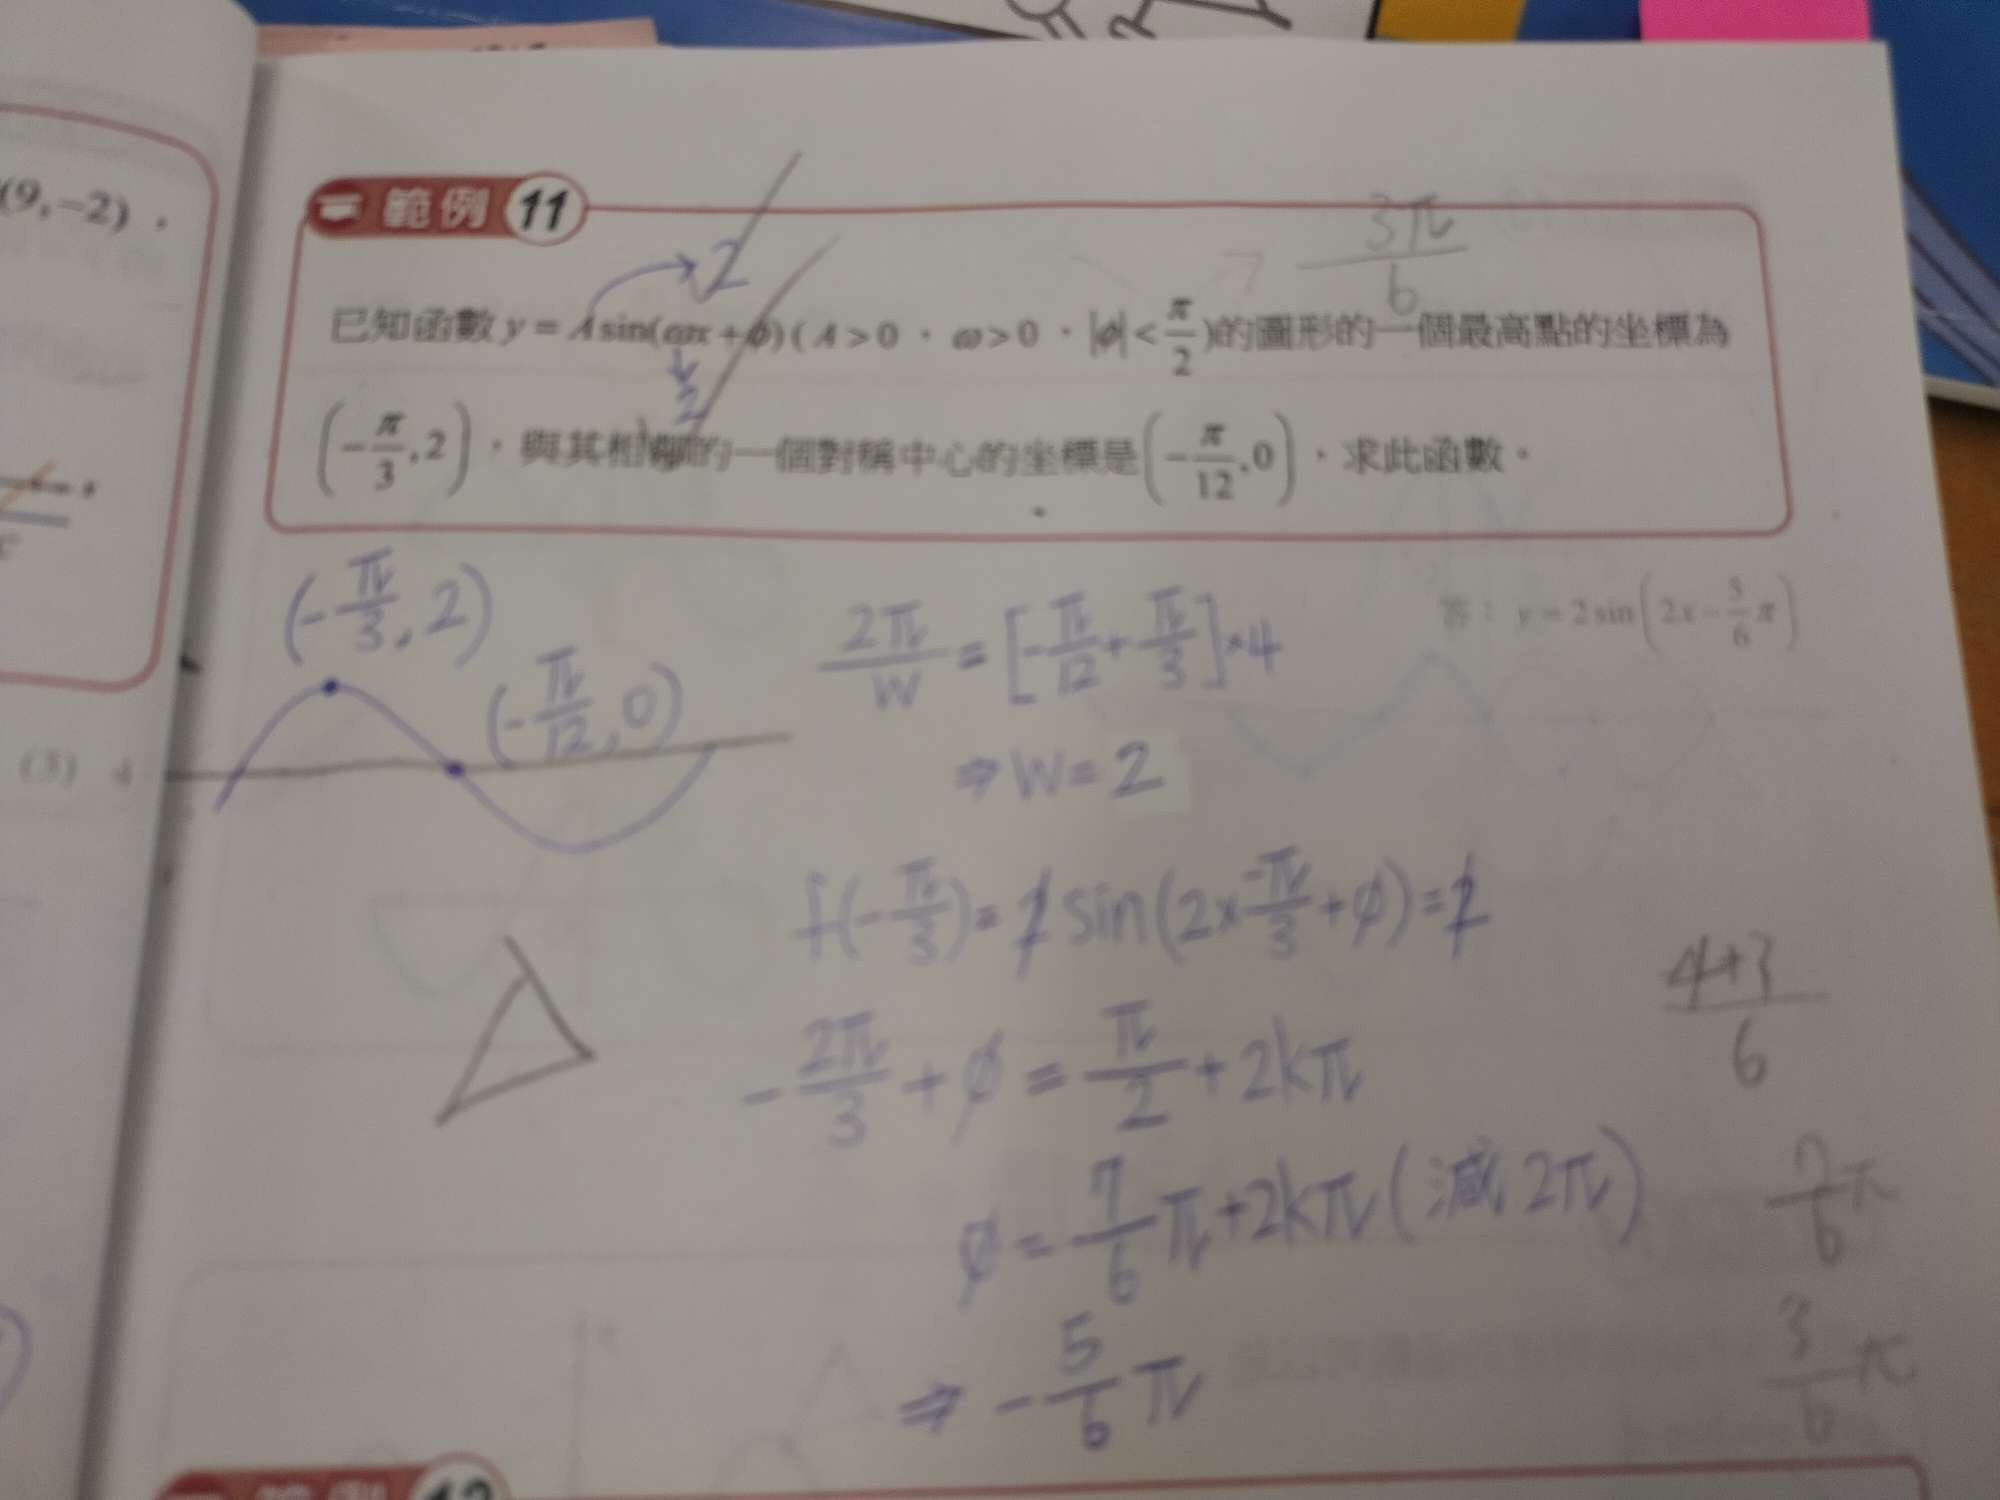 (9,−2)，
範例 11
√2
3π/6
已知函數 y = A sin(ωx + φ) ( A > 0 ， ω > 0 ， |φ| < π/2 )的圖形的一個最高點的坐標為
2
(−π/3, 2)，與其相鄰的一個對稱中心的坐標是(−π/12, 0)，求此函數。
答： y = 2 sin(2x − 5/6 π)
(-π/3, 2)
(-π/12, 0)
2π/W = [-π/12 + π/3]×4
⇒ W = 2
(3) 4
f(-π/3) = 2 sin(2×-π/3 + φ) = 2
4+3/6
-2π/3 + φ = π/2 + 2kπ
φ = 7/6 π + 2kπ (減 2π)
7/6 π
⇒ -5/6 π
3/6 π
C